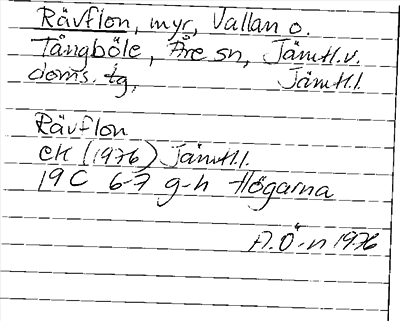 Rävflon, myr, Vallan o.
Tångböle, Åre sn, Jämtl.v.
doms. tg, Jämtl.l.
Rävflon
ek (1976) Jämtl.l.
19C 6-7 g-h Högarna
A.Ö-n 1976